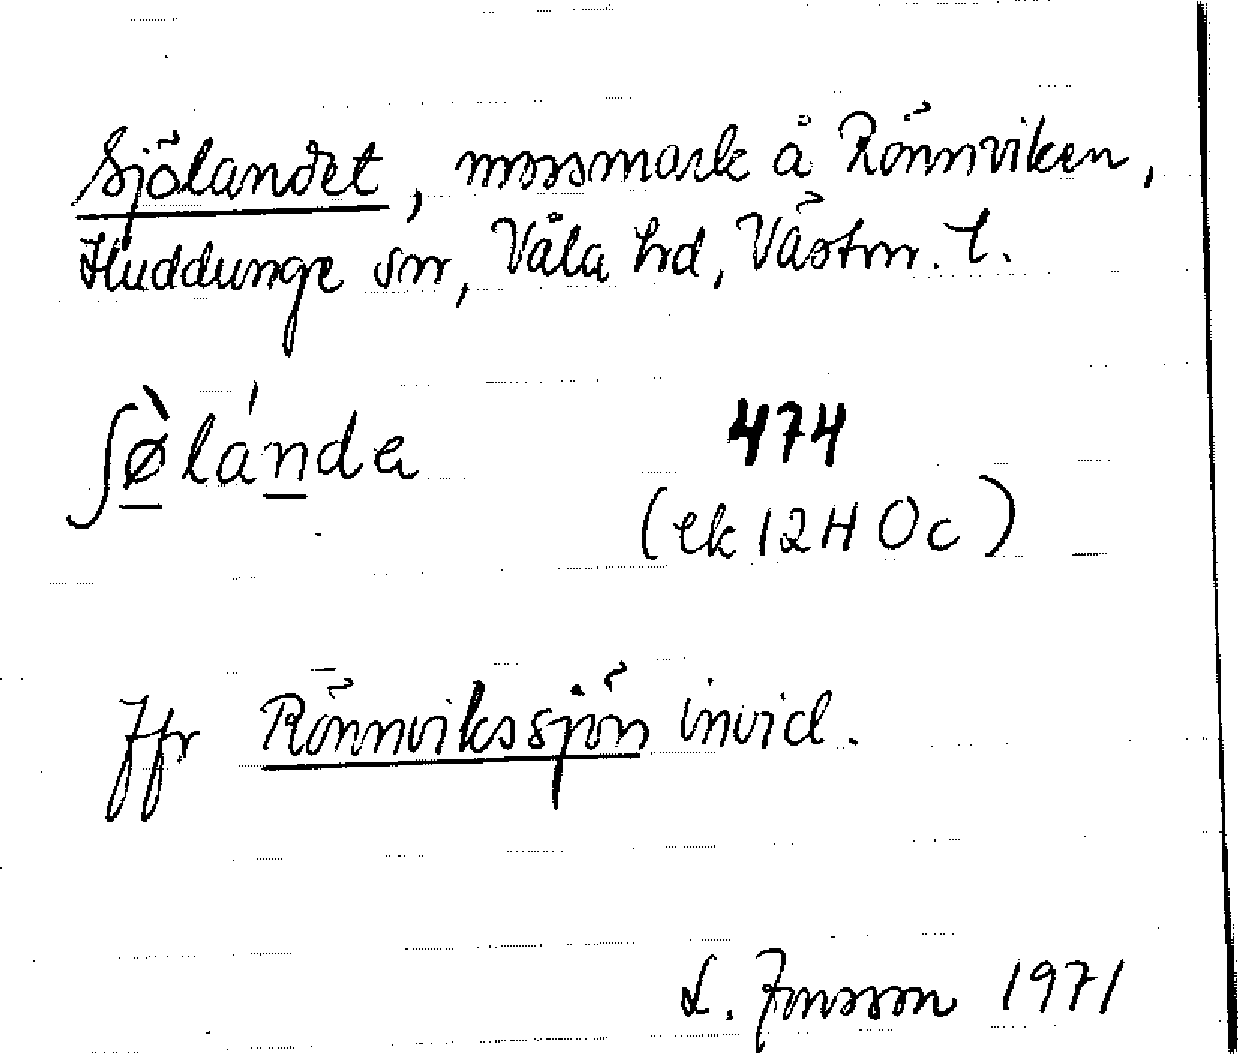 Sjölandet, mossmark å Rönnviken,
Huddunge sn, Våla hd, Västm. l.
ʃø̠̀lán̠da 474
(ek 12H 0c)
Jfr Rönnvikssjön invid.
L. Jonsson 1971